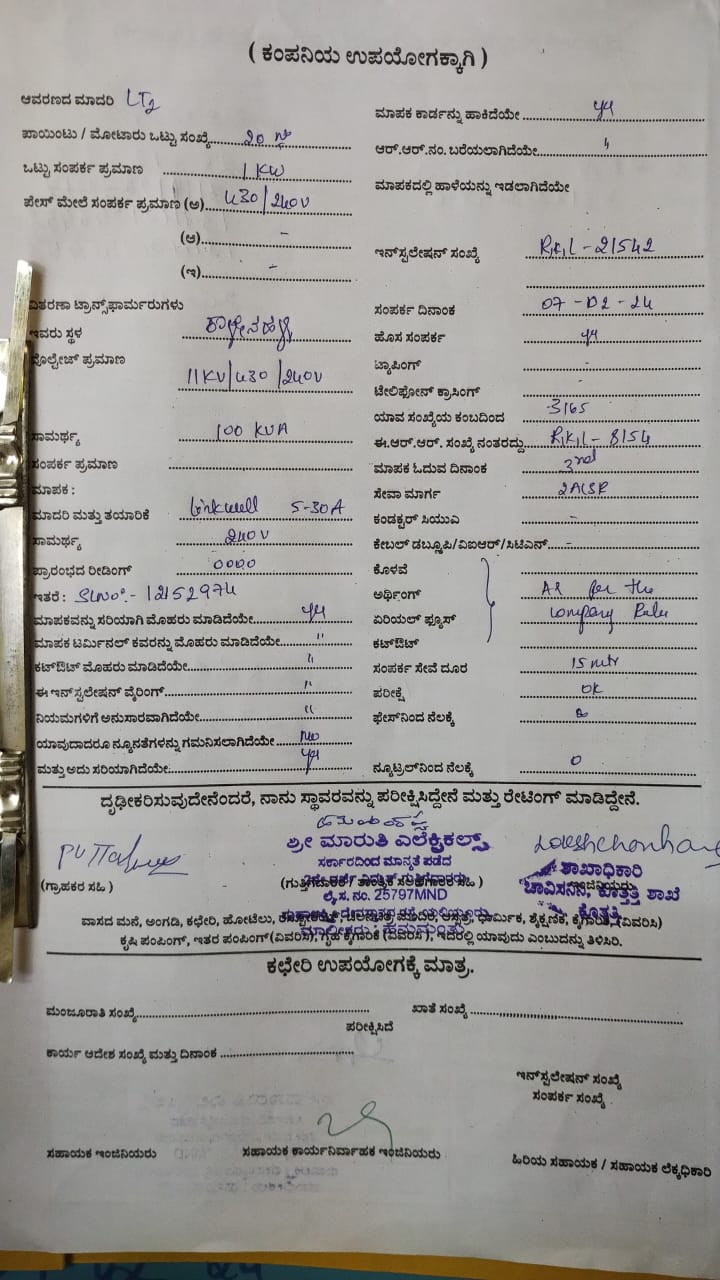 ( ಕಂಪನಿಯ ಉಪಯೋಗಕ್ಕಾಗಿ )
ಆವರಣದ ಮಾದರಿ LT2
ಪಾಯಿಂಟು / ಮೋಟಾರು ಒಟ್ಟು ಸಂಖ್ಯೆ 20
ಒಟ್ಟು ಸಂಪರ್ಕ ಪ್ರಮಾಣ 1 KW
ಫೇಸ್ ಮೇಲೆ ಸಂಪರ್ಕ ಪ್ರಮಾಣ (ಅ) 430/240V
(ಆ) -
(ಇ) -
ವಿತರಣಾ ಟ್ರಾನ್ಸ್‌ಫಾರ್ಮರುಗಳು
ಇವರು ಸ್ಥಳ
ವೋಲ್ಟೇಜ್ ಪ್ರಮಾಣ 11KV/430/240V
ಸಾಮರ್ಥ್ಯ 100 KVA
ಸಂಪರ್ಕ ಪ್ರಮಾಣ
ಮಾಪಕ :
ಮಾದರಿ ಮತ್ತು ತಯಾರಿಕೆ Linkwell 5-30A
ಸಾಮರ್ಥ್ಯ 240V
ಪ್ರಾರಂಭದ ರೀಡಿಂಗ್ 0000
ಇತರೆ : Sl.No:- 12152974
ಮಾಪಕವನ್ನು ಸರಿಯಾಗಿ ಮೊಹರು ಮಾಡಿದೆಯೇ yes
ಮಾಪಕ ಟರ್ಮಿನಲ್ ಕವರನ್ನು ಮೊಹರು ಮಾಡಿದೆಯೇ "
ಕಟ್‌ಔಟ್ ಮೊಹರು ಮಾಡಿದೆಯೇ "
ಈ ಇನ್‌ಸ್ಟಲೇಷನ್ ವೈರಿಂಗ್ "
ನಿಯಮಗಳಿಗೆ ಅನುಸಾರವಾಗಿದೆಯೇ "
ಯಾವುದಾದರೂ ನ್ಯೂನತೆಗಳನ್ನು ಗಮನಿಸಲಾಗಿದೆಯೇ No
ಮತ್ತು ಅದು ಸರಿಯಾಗಿದೆಯೇ yes
ಮಾಪಕ ಕಾರ್ಡನ್ನು ಹಾಕಿದೆಯೇ yes
ಆರ್.ಆರ್.ನಂ. ಬರೆಯಲಾಗಿದೆಯೇ "
ಮಾಪಕದಲ್ಲಿ ಹಾಳೆಯನ್ನು ಇಡಲಾಗಿದೆಯೇ
ಇನ್‌ಸ್ಟಲೇಷನ್ ಸಂಖ್ಯೆ RKL-21542
ಸಂಪರ್ಕ ದಿನಾಂಕ 07-02-24
ಹೊಸ ಸಂಪರ್ಕ yes
ಟ್ಯಾಪಿಂಗ್ -
ಟೆಲಿಫೋನ್ ಕ್ರಾಸಿಂಗ್ -
ಯಾವ ಸಂಖ್ಯೆಯ ಕಂಬದಿಂದ 3165
ಈ.ಆರ್.ಆರ್. ಸಂಖ್ಯೆ ನಂತರದ್ದು RKL-8154
ಮಾಪಕ ಓದುವ ದಿನಾಂಕ 3rd
ಸೇವಾ ಮಾರ್ಗ 2ACSR
ಕಂಡಕ್ಟರ್ ಸಿಯುಎ -
ಕೇಬಲ್ ಡಬ್ಲ್ಯೂಪಿ/ವಿಐಆರ್/ಸಿಟಿಎನ್ -
ಕೊಳವೆ
ಅರ್ಥಿಂಗ್ As per the
ಏರಿಯಲ್ ಫ್ಯೂಸ್ company Rules
ಕಟ್‌ಔಟ್
ಸಂಪರ್ಕ ಸೇವೆ ದೂರ 15 mtr
ಪರೀಕ್ಷೆ OK
ಫೇಸ್‌ನಿಂದ ನೆಲಕ್ಕೆ
ನ್ಯೂಟ್ರಲ್‌ನಿಂದ ನೆಲಕ್ಕೆ 0
ದೃಢೀಕರಿಸುವುದೇನೆಂದರೆ, ನಾನು ಸ್ಥಾವರವನ್ನು ಪರೀಕ್ಷಿಸಿದ್ದೇನೆ ಮತ್ತು ರೇಟಿಂಗ್ ಮಾಡಿದ್ದೇನೆ.
ಶ್ರೀ ಮಾರುತಿ ಎಲೆಕ್ಟ್ರಿಕಲ್ಸ್
ಸರ್ಕಾರದಿಂದ ಮಾನ್ಯತೆ ಪಡೆದ
ಲೈ.ಸ. ನಂ. 25797MND
ಶಾಖಾಧಿಕಾರಿ
ಚಾವಿಸನಿನಿ, ಕೊತ್ತತ್ತಿ ಶಾಖೆ
ಕೊತ್ತತ್ತಿ
(ಗ್ರಾಹಕರ ಸಹಿ )
ವಾಸದ ಮನೆ, ಅಂಗಡಿ, ಕಛೇರಿ, ಹೋಟೆಲು, ಆಸ್ಪತ್ರೆ, ಧಾರ್ಮಿಕ, ಶೈಕ್ಷಣಿಕ, ಕೈಗಾರಿಕೆ, (ವಿವರಿಸಿ)
ಕೃಷಿ ಪಂಪಿಂಗ್, ಇತರ ಪಂಪಿಂಗ್(ವಿವರಿಸಿ), ಗೃಹ ಕೈಗಾರಿಕೆ (ವಿವರಿಸಿ ), ಇದರಲ್ಲಿ ಯಾವುದು ಎಂಬುದನ್ನು ತಿಳಿಸಿರಿ.
ಕಛೇರಿ ಉಪಯೋಗಕ್ಕೆ ಮಾತ್ರ.
ಮಂಜೂರಾತಿ ಸಂಖ್ಯೆ ಖಾತೆ ಸಂಖ್ಯೆ
ಪರೀಕ್ಷಿಸಿದೆ
ಕಾರ್ಯ ಆದೇಶ ಸಂಖ್ಯೆ ಮತ್ತು ದಿನಾಂಕ
ಇನ್‌ಸ್ಟಲೇಷನ್ ಸಂಖ್ಯೆ
ಸಂಪರ್ಕ ಸಂಖ್ಯೆ
ಸಹಾಯಕ ಇಂಜಿನಿಯರು ಸಹಾಯಕ ಕಾರ್ಯನಿರ್ವಾಹಕ ಇಂಜಿನಿಯರು ಹಿರಿಯ ಸಹಾಯಕ / ಸಹಾಯಕ ಲೆಕ್ಕಾಧಿಕಾರಿ